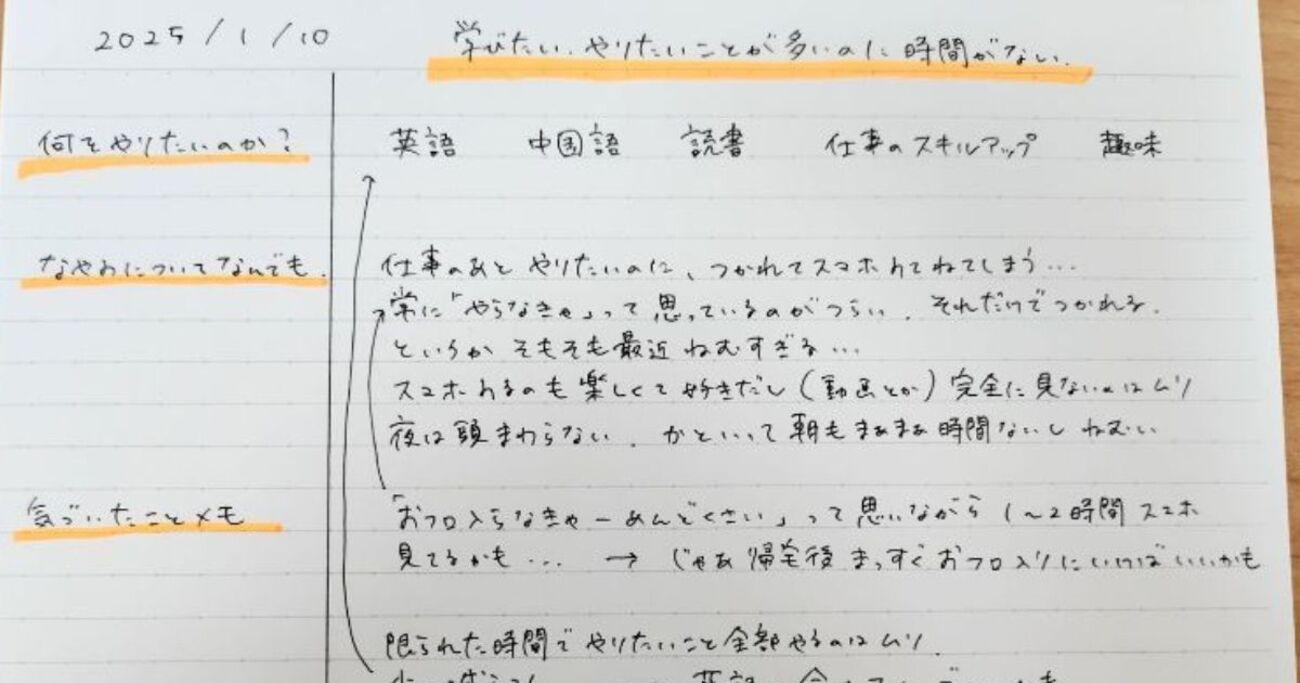 2025/1/10
学びたい、やりたいことが多いのに時間がない。
何をやりたいのか?
英語 中国語 読書 仕事のスキルアップ 趣味
なやみについてなんでも。
仕事のあと やりたいのに、つかれてスマホ見てねてしまう...
常に「やらなきゃ」って思っているのがつらい。それだけでつかれる。
というか そもそも最近ねむすぎる...
スマホ見るのも楽しくて好きだし(動画とか)完全に見ないのはムリ
夜は頭まわらない。かといって朝もまぁまぁ時間ないしねむい
気づいたことメモ
「おフロ入らなきゃーめんどくさい」って思いながら1〜2時間スマホ
見てるかも... → じゃあ帰宅後まっすぐおフロ入りにいけばいいかも
限られた時間でやりたいこと全部やるのはムリ。